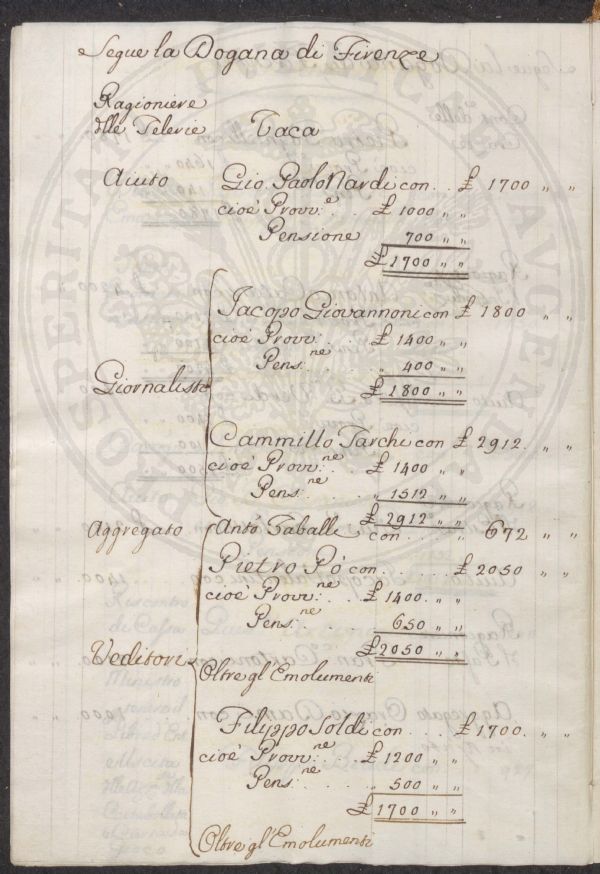 Segue la Dogana di Firenze
Ragioniere
dlle Telerie Vaca
Aiuto Gio. Paolo Nardi con .. £ 1700 " "
cioè Provv:e . £ 1000 " "
Pensione 700 " "
£ 1700 " "
Jacopo Giovannoni con £ 1800 " "
cioè Provv: . . £ 1400 " "
Pens:ne . . " 400 " "
Giornalisti £ 1800 " "
Cammillo Tarchi con £ 2912. " "
cioè Provv:ne . . £ 1400 " "
Pens:ne . . . " 1512 " "
£ 2912 " "
Aggregato Antо̃ Taballi con . . . . " 672 " "
Pietro Pò con . . . . . £ 2050 " "
cioè Provv:ne . . £ 1400. " "
Pens:ne . . . . 650 " "
£ 2050 " "
Veditori Oltre gl'Emolumenti
Filippo Soldi con . . . £ 1700. " "
cioè Provv:ne . . £ 1200 " "
Pens:ne . . . . " 500 " "
£ 1700 " "
Oltre gl'Emolumenti
PROSPERITAS PUBLICAE AUGENDAE